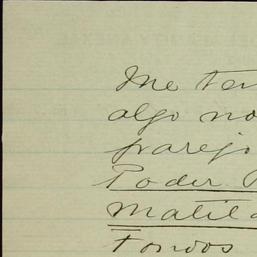 Me ten
algo no
parejo
Poder
Matild
Fondos